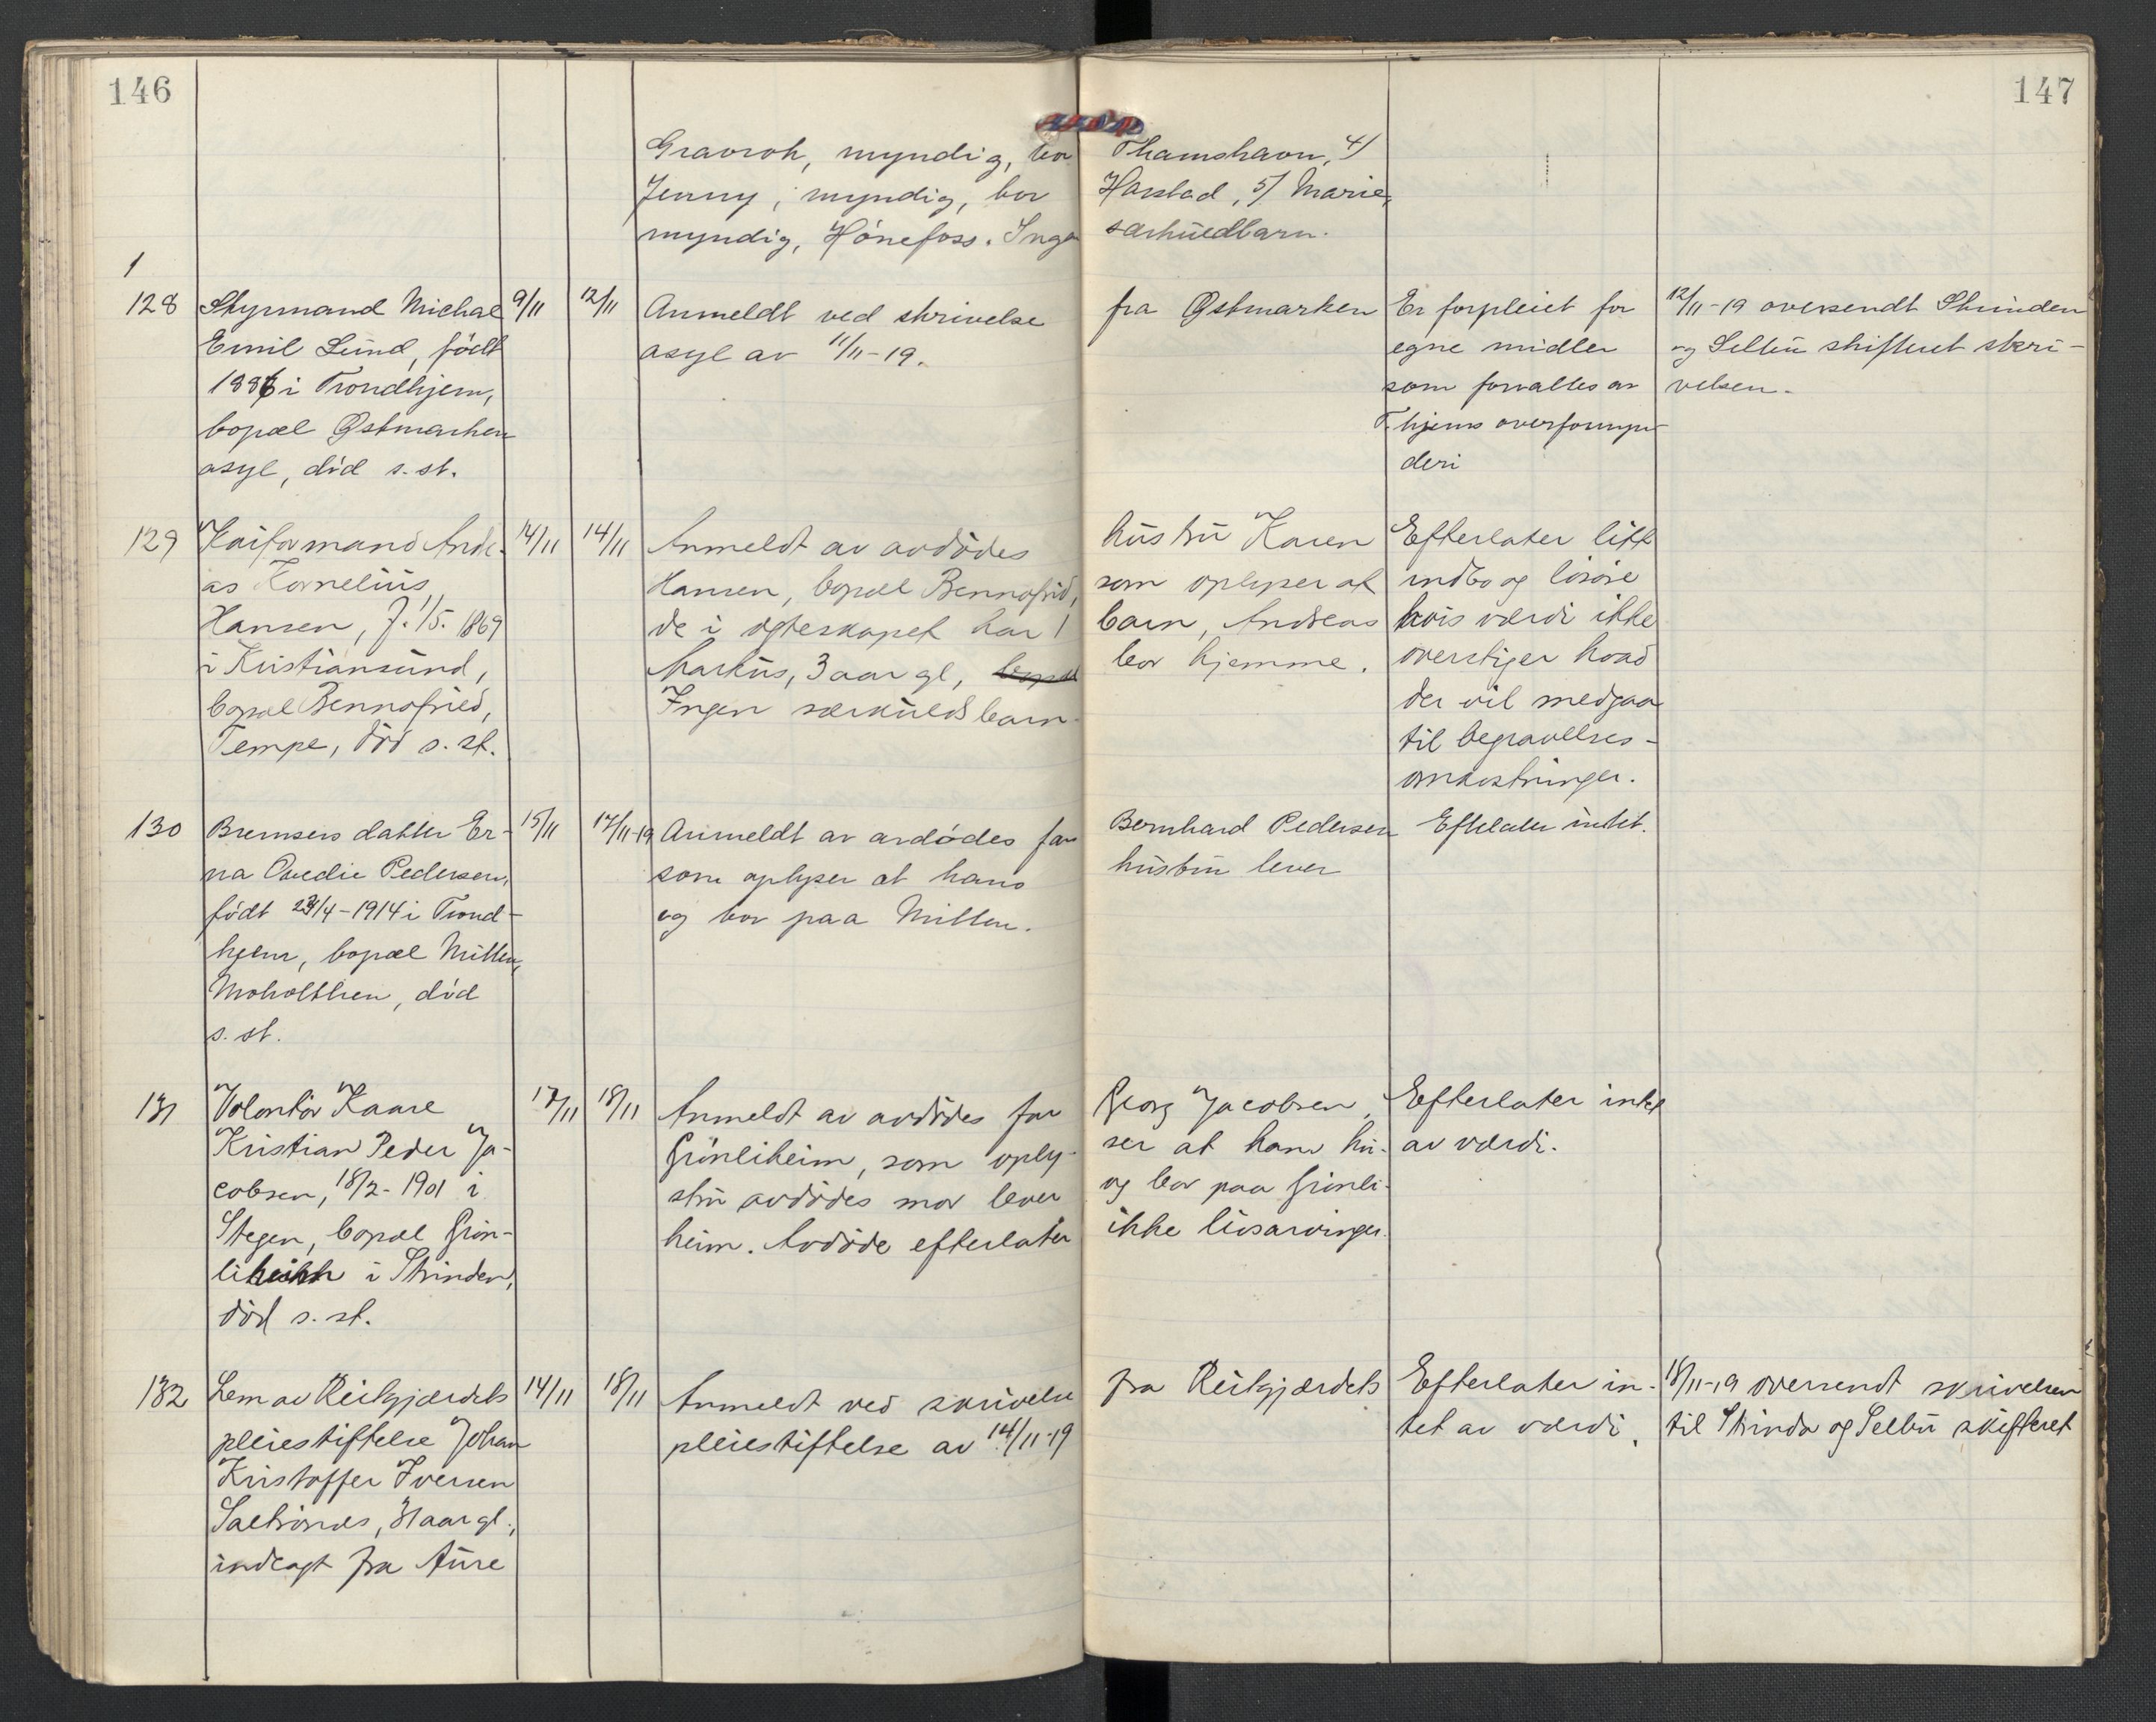 146
147
Gravrok, myndig, bor Thamshavn, 4/
Jenny, myndig, bor Harstad, 5/ Marie,
myndig, Hönefoss. Ingen særkuldbarn.
1
128 Styrmand Michael 9/11 12/11 Anmeldt ved skrivelse fra Østmarken Er forpleiet for 12/11-19 oversendt Strinden
Emil Lund, født asyl av 11/11-19. egne midler og Selbu skifteret skri-
1886 i Trondhjem, som forvaltes av velsen.
bopæl Østmarken T.hjems overformyn-
asyl, död s. st. deri
129 Kaiformand Andr- 14/11 14/11 Anmeldt av avdödes hustru Karen Efterlater litt
as Kornelius Hansen, bopæl Bennofrid, som oplyser at indbo og lösöre
Hansen, f. 1/5. 1869 de i egteskapet har 1 barn, Andreas hvis værdi ikke
i Kristiansund, Markus, 3 aar gl, bopæl bor hjemme. overstiger hvad
bopæl Bennofried, Ingen særkuldsbarn. der vil medgaa
Tempe, död s. st. til begravelses-
omkostninger.
130 Bremsers datter Er- 15/11 17/11-19 Anmeldt av avdödes far Bernhard Pedersen Efterlater intet.
na Ovedie Pedersen, som oplyser at hans hustru lever
födt 23/4-1914 i Trond- og bor paa Millen.
hjem, bopæl Millen,
Moholtlien, död
s. st.
131 Volontör Kaare 17/11 18/11 Anmeldt av avdödes far Georg Jacobsen, Efterlater intet
Kristian Peder Ja- Grönliheim, som oply- ser at hans hu- av værdi.
cobsen, 18/2-1901 i stru avdödes mor lever og bor paa Grönli-
Stegen, bopæl Grön- heim. Avdöde efterlater ikke livsarvinger.
liheim i Strinden,
död s. st.
132 Lem av Reitgjærdets 14/11 18/11 Anmeldt ved skrivelse fra Reitgjærdets Efterlater in- 18/11-19 oversendt skrivelsen
pleiestiftelse Johan pleiestiftelse av 14/11-19 tet av værdi. til Strinda og Selbu skifteret
Kristoffer Iversen
31 aar gl.,
indlagt fra Aure